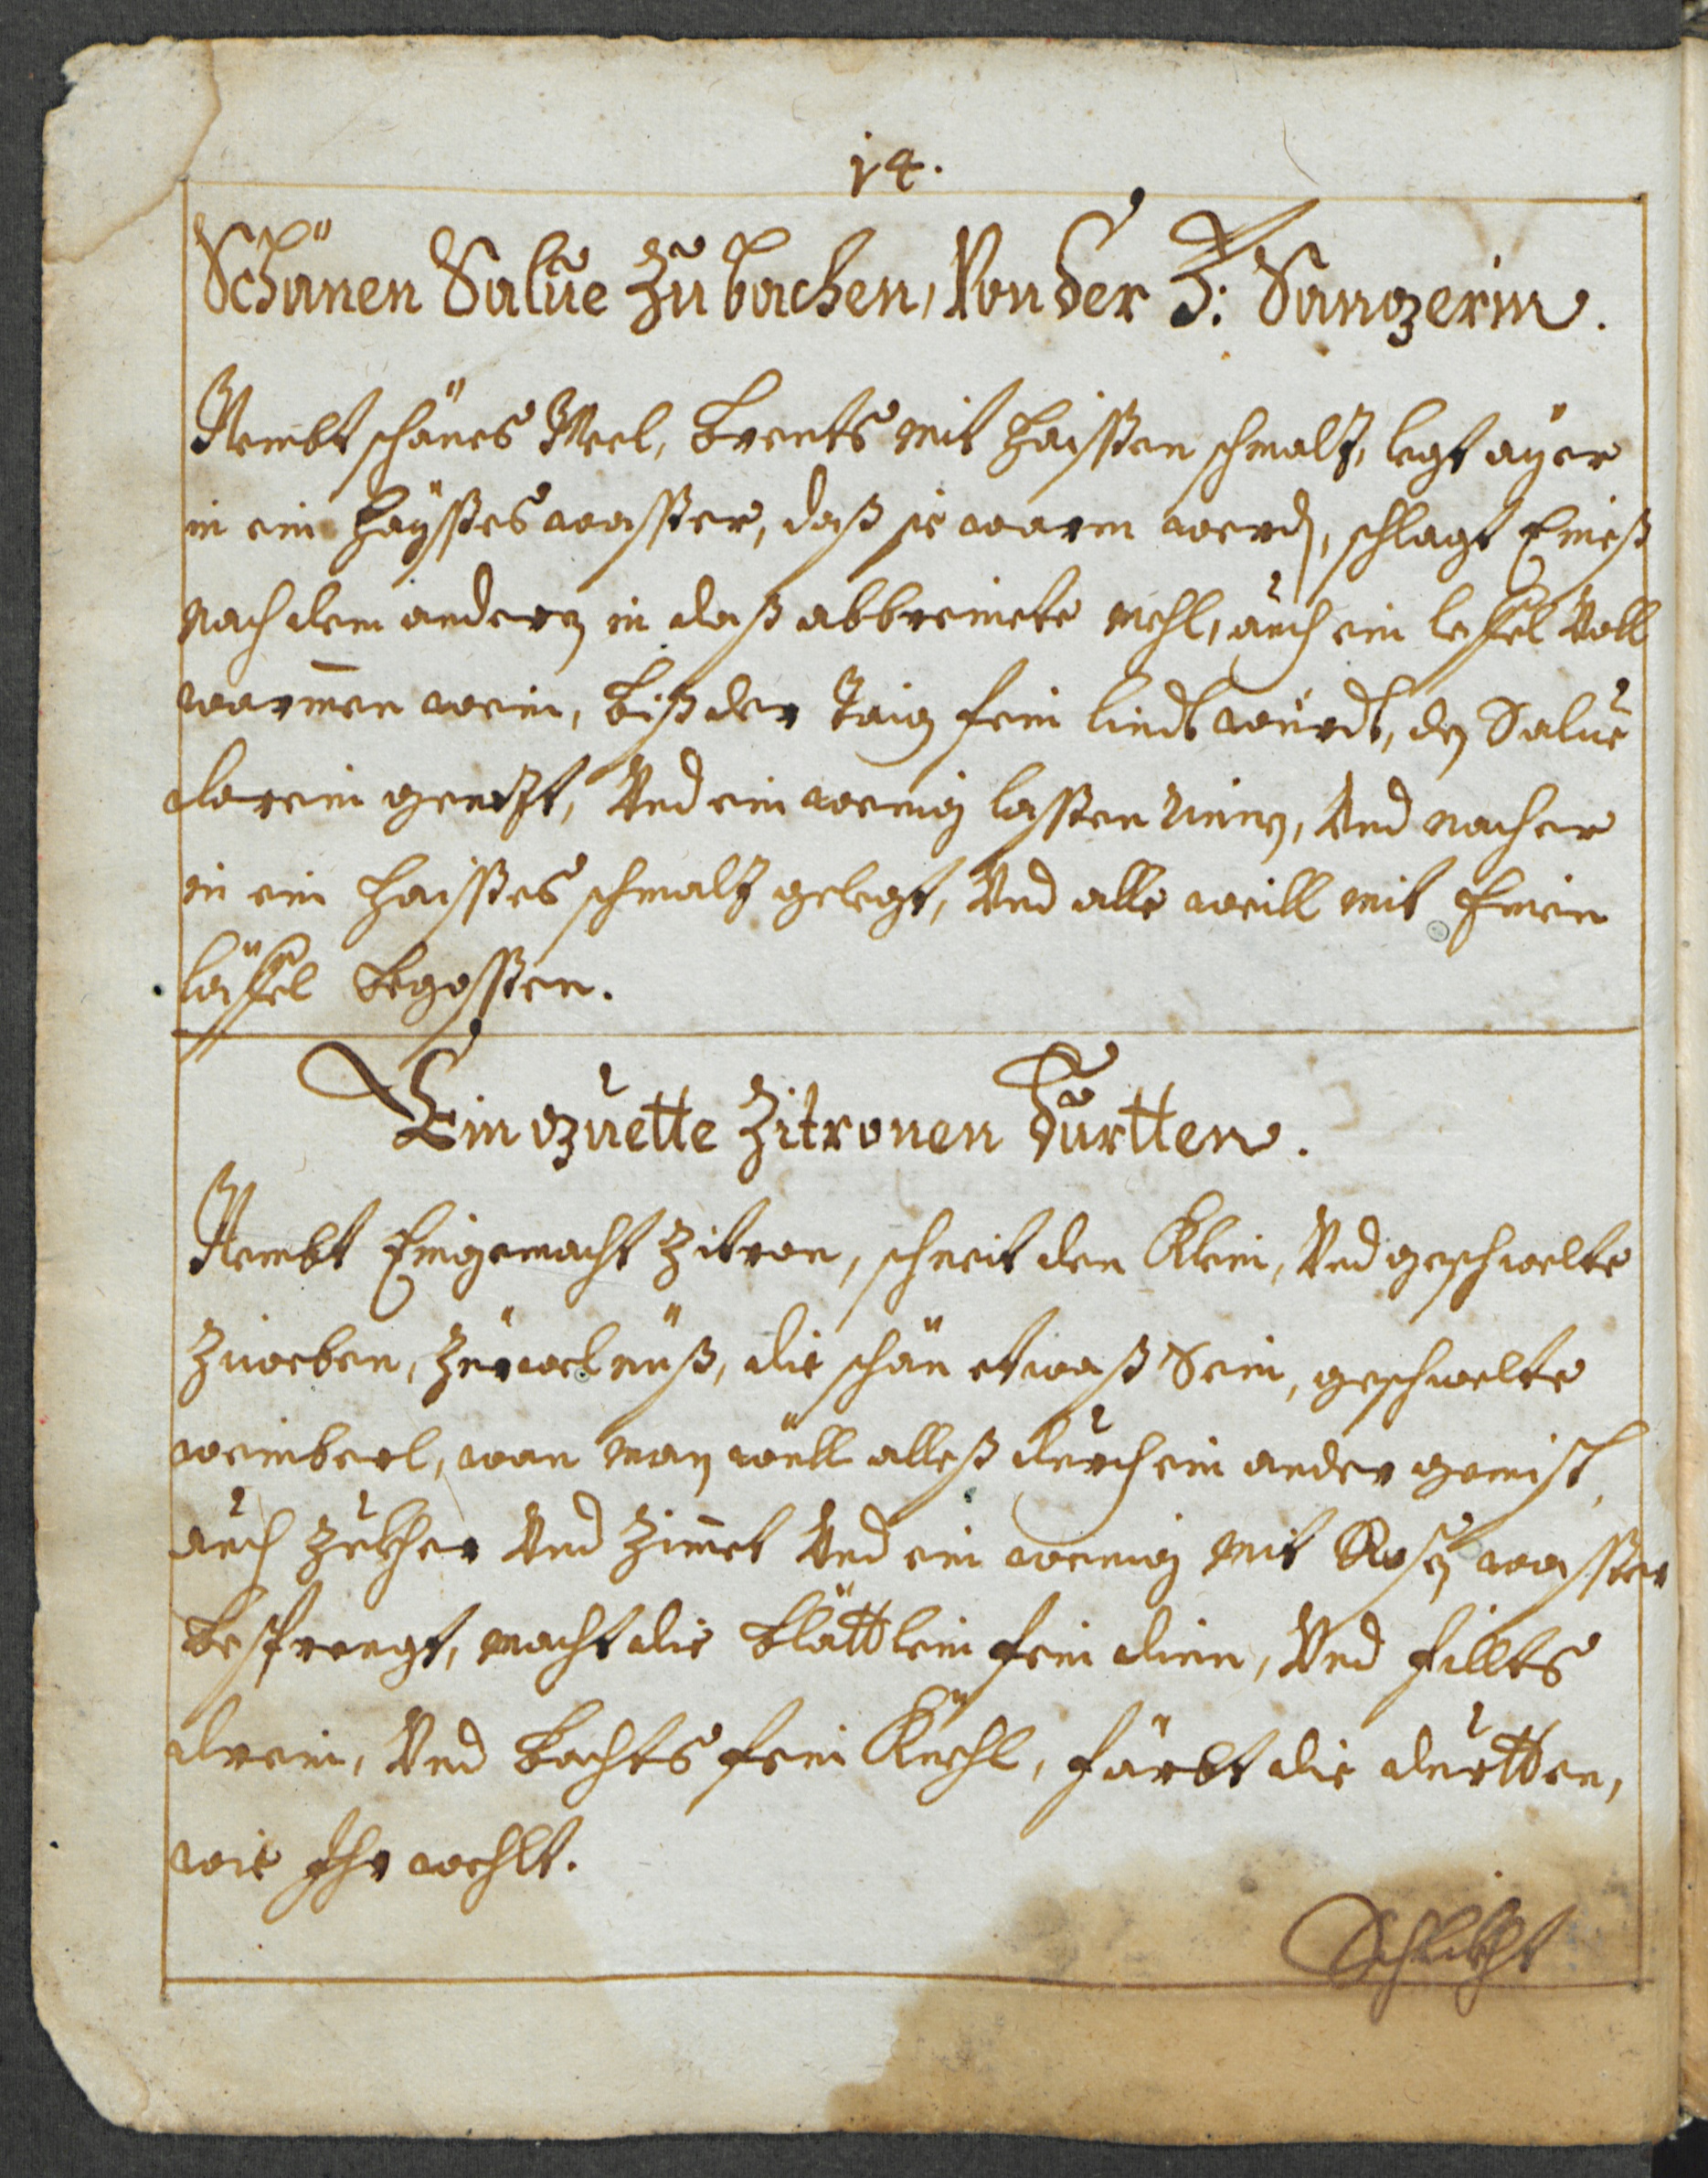 14.
Schänen Salue Zu bachen, Von der F: Sanczerin.
Nembt schänes Meel, brents mit haissen schmalz, legt ayer
in ein haysses wasser, daß sie warm werdn, schlagt Eineß
nach dem andern in daß abbreinete mehl, auch ein leffel Voll
warmen wein, biß der taig fein lindt wurdt, den Salue
darein gerözt, Vnd ein wenig lassen rinnen, Vnd nacher
in ein haisses schmalz gelegt, Vnd alle weill mit Einen
läffel begossen.
Ein czuette Zitronen Durtten.
Nembt Eingemacht Zitron, schneit den Klein, Vnd geschwelte
Zweben, Zürwelnuß, die schän etwaß Sein, geschwelte
weinberl, wan man wüll alleß durch ein ander gemischt,
auch Zukher Vnd Zimet Vnd ein wenig mit Rosen wasser
besprengt, macht die blättlein fein dinn, Vnd fillts
drein, Vnd bachts fein Kuehl, färbt die durtten,
wie Ihr wehlt.